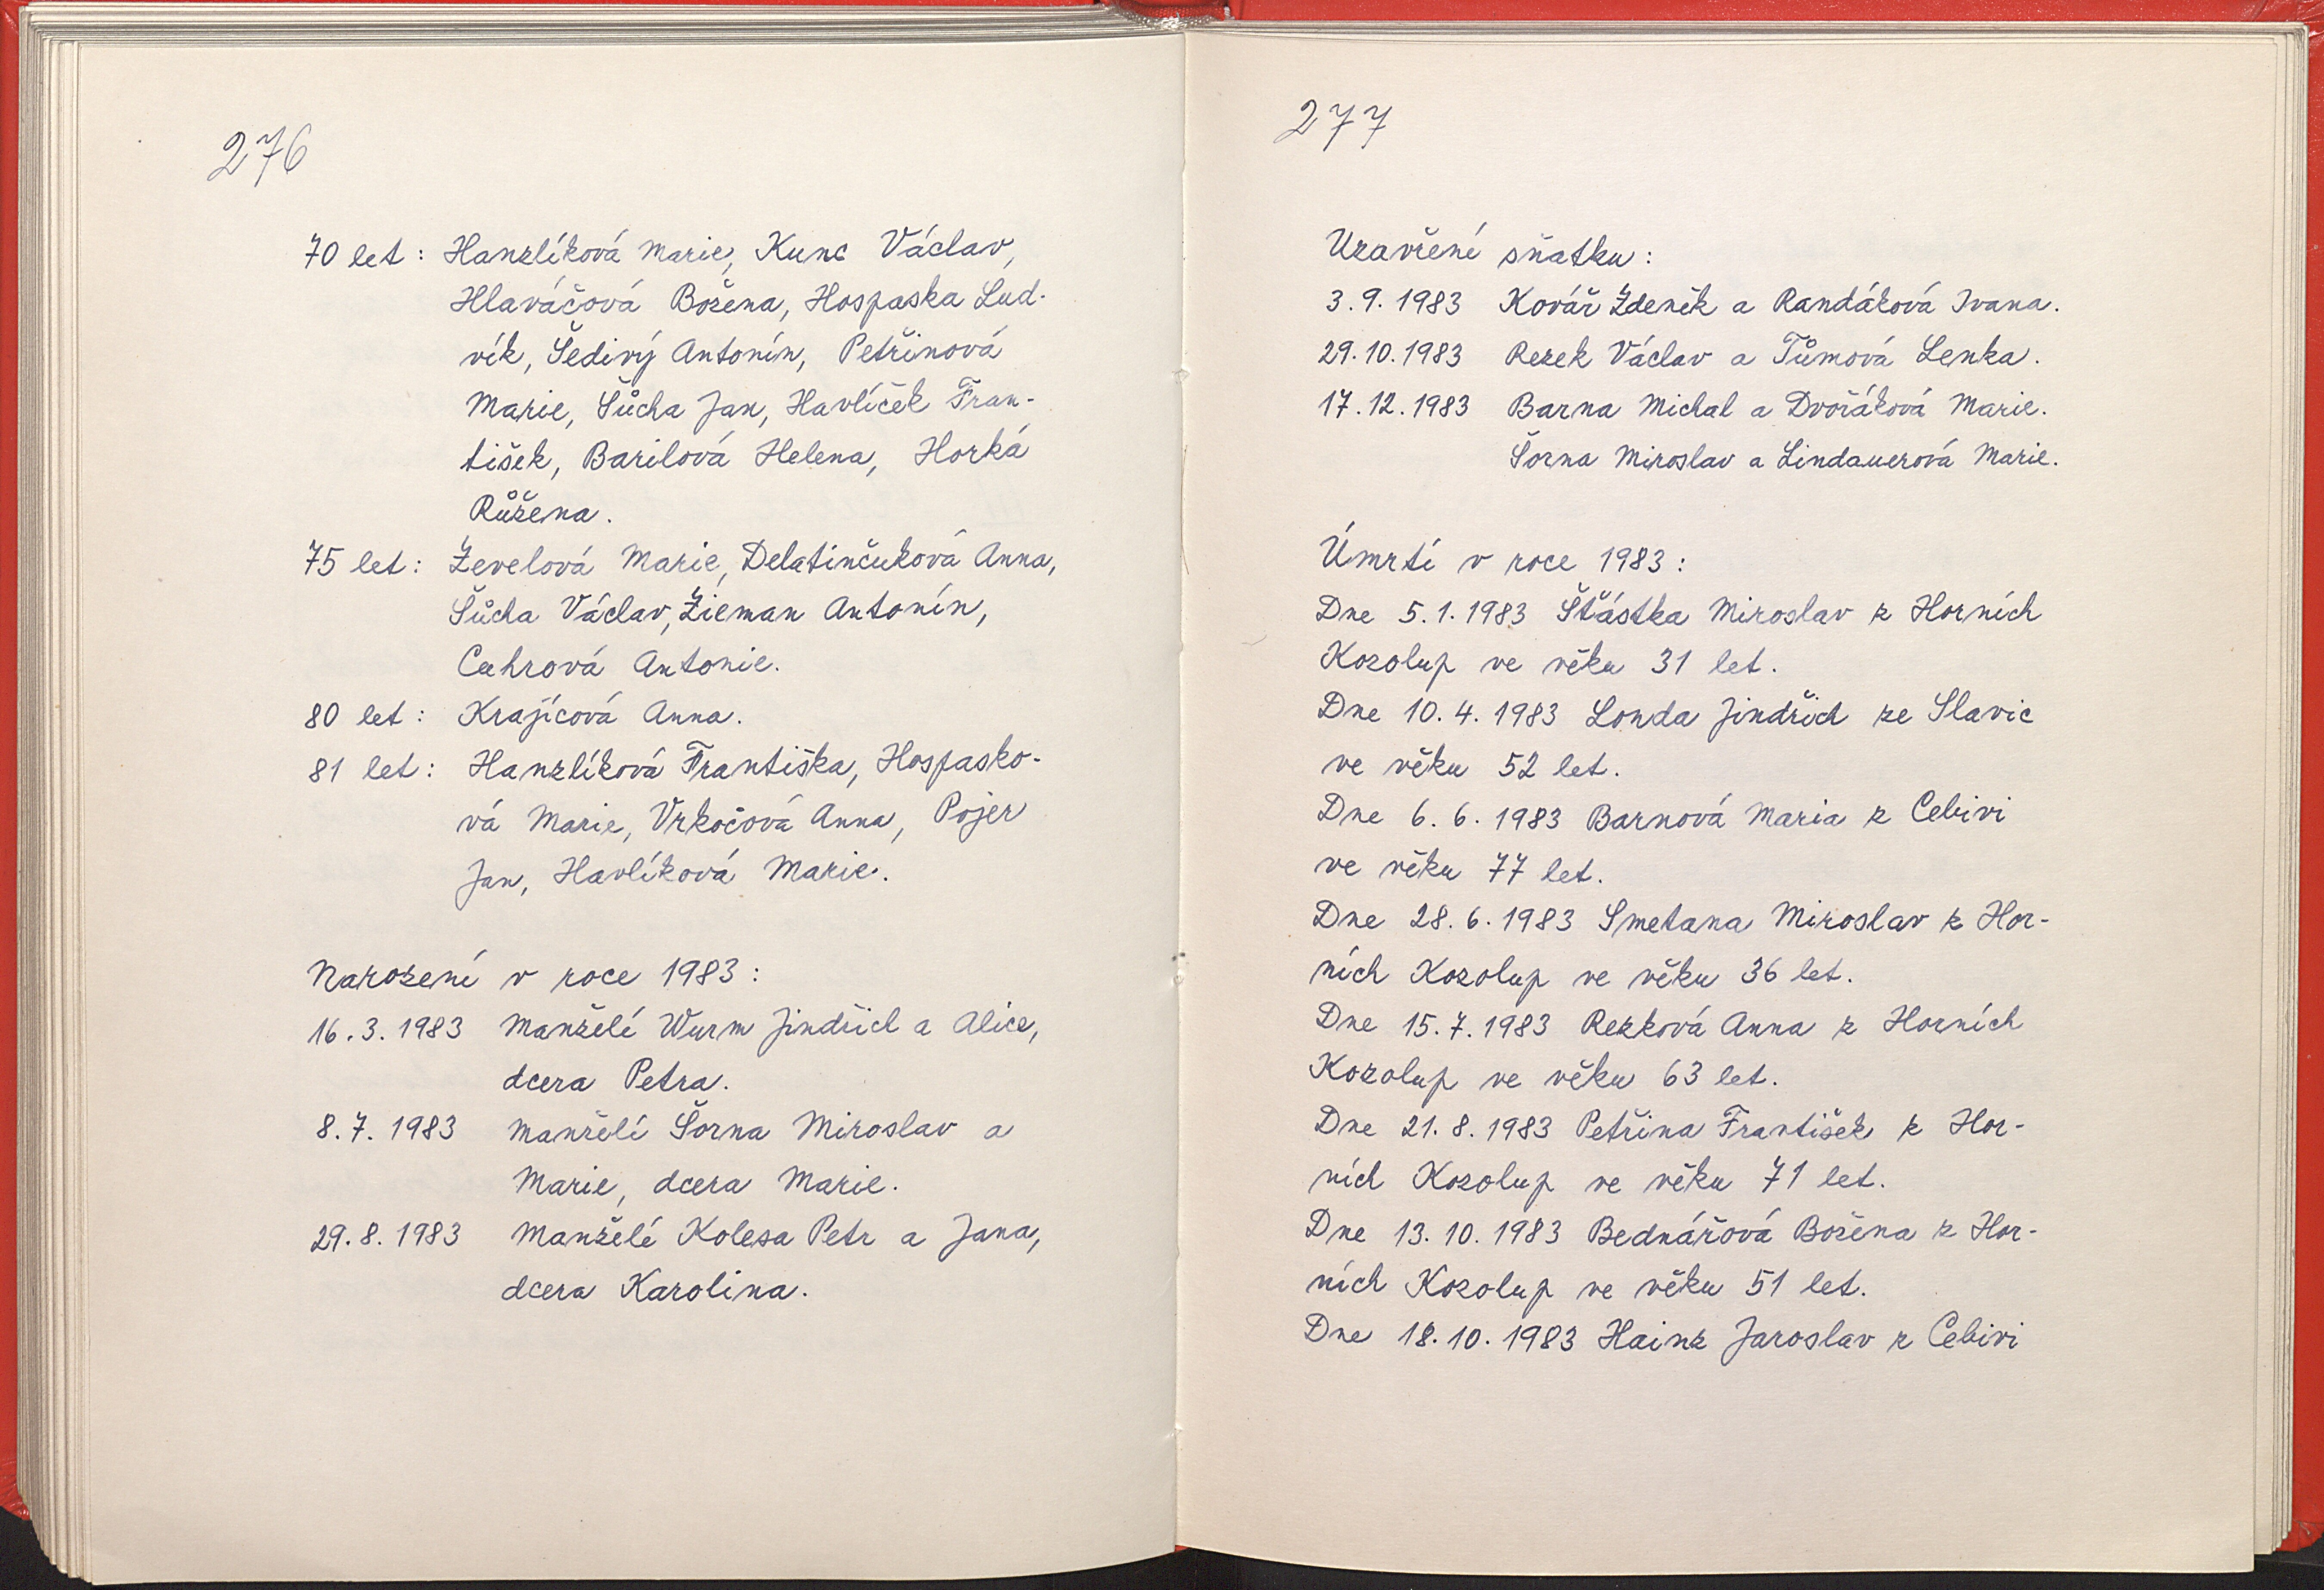 276
70 let: Hanzlíková Marie, Kunc Václav,
Hlaváčová Božena, Hospaska Lud-
vík, Šedivý Antonín, Petřinová
Marie, Šůcha Jan, Havlíček Fran-
tišek, Barilová Helena, Horká
Růžena.
75 let: Zevelová Marie, Delatinčuková Anna,
Šůcha Václav, Zieman Antonín,
Cuhrová Antonie.
80 let: Krajícová Anna.
81 let: Hanzlíková Františka, Hospasko-
vá Marie, Vrkočová Anna, Pojer
Jan, Havlíková Marie.
Narození v roce 1983:
16.3.1983 Manželé Wurm Jindřich a Alice,
dcera Petra.
8.7.1983 Manželé Šorna Miroslav a
Marie, dcera Marie.
29.8.1983 Manželé Kolesa Petr a Jana,
dcera Karolina.
277
Uzavření sňatku:
3.9.1983 Kovář Zdeněk a Randáková Ivana.
29.10.1983 Rezek Václav a Tůmová Lenka.
17.12.1983 Barna Michal a Dvořáková Marie.
Šorna Miroslav a Lindauerová Marie.
Úmrtí v roce 1983:
Dne 5.1.1983 Šťástka Miroslav z Horních
Kozolup ve věku 31 let.
Dne 10.4.1983 Londa Jindřich ze Slavic
ve věku 52 let.
Dne 6.6.1983 Barnová Maria z Cebivi
ve věku 77 let.
Dne 28.6.1983 Smetana Miroslav z Hor-
ních Kozolup ve věku 36 let.
Dne 15.7.1983 Rezková Anna z Horních
Kozolup ve věku 63 let.
Dne 21.8.1983 Petřina František z Hor-
ních Kozolup ve věku 71 let.
Dne 13.10.1983 Bednářová Božena z Hor-
ních Kozolup ve věku 51 let.
Dne 18.10.1983 Hainz Jaroslav z Cebivi